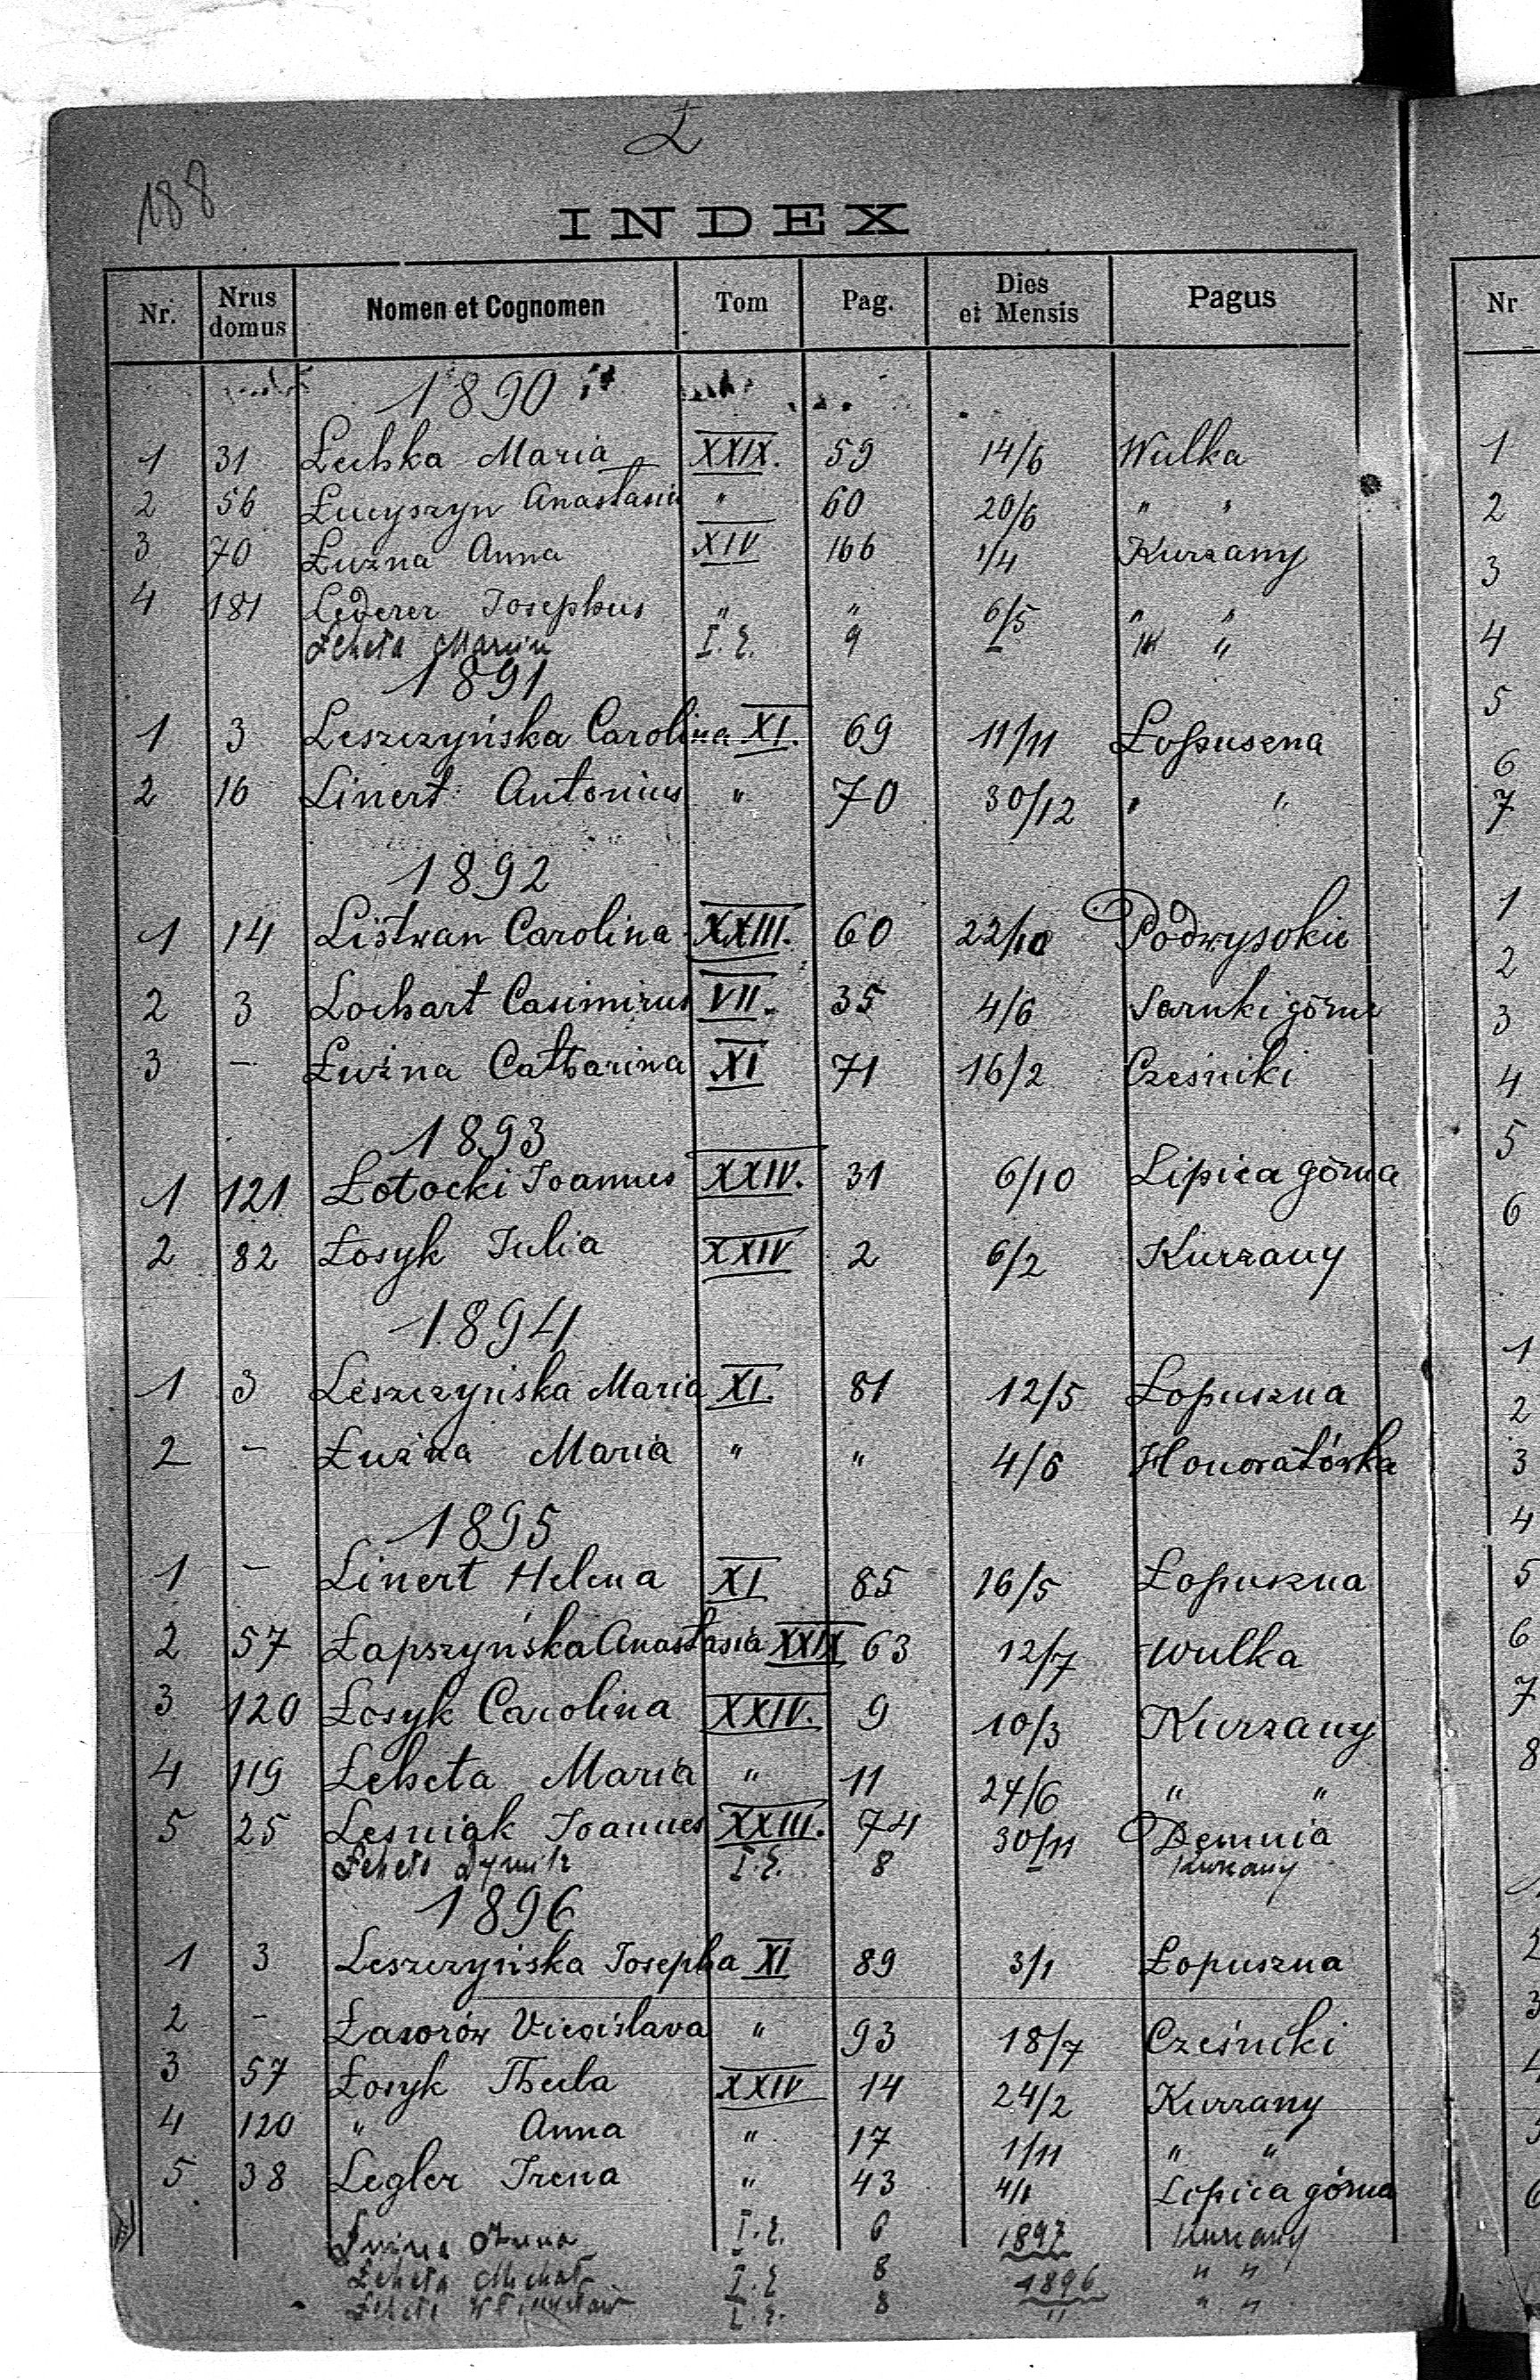 Ł
188
INDEX
Nr. Nrus domus Nomen et Cognomen Tom Pag. Dies et Mensis Pagus Nr
1890
1 31 Lechka Maria XXIX. 59 14/6 Wulka
2 56 Łucyszyn Anastasia " 60 20/6 " "
3 70 Łuźna Anna XIV 166 1/4 Kurzany
4 181 Lederer Josephus " " 6/5 " "
Łeheta Marcin I. E. 9 "
1891
1 3 Leszczyńska Carolina XI. 69 11/11 Łopuszna
2 16 Linert Antonius " 70 30/12 " "
1892
1 14 Listwan Carolina XXIII. 60 22/10 Podwysokie
2 3 Lochart Casimirus VII. 35 4/6 Sarnki górne
3 – Łuźna Catharina XI 71 16/2 Cześniki
1893
1 121 Łotocki Joannes XXIV. 31 6/10 Lipica górna
2 82 Łosyk Julia XXIV 2 6/2 Kurzany
1894
1 3 Leszczyńska Maria XI. 81 12/5 Łopuszna
2 – Łuźna Maria " " 4/6 Honoratówka
1895
1 – Linert Helena XI 85 16/5 Łopuszna
2 57 Łapszyńska Anastasia XXIX 63 12/7 Wulka
3 120 Łosyk Carolina XXIV. 9 10/3 Kurzany
4 119 Łeheta Maria " 11 24/6 " "
5 25 Leśniak Joannes XXIII. 74 30/11 Demnia
Łeheta Dymitr I. E. 8 Kurzany
1896
1 3 Leszczyńska Josepha XI 89 3/1 Łopuszna
2 – Łazorów " 93 18/7 Cześniki
3 57 Łosyk Thecla XXIV 14 24/2 Kurzany
4 120 " Anna " 17 1/11 " "
5 38 Legler Irena " 43 4/1 Lipica górna
Anna I. E. 6 1897 Kurzany
Łeheta Michał I. E 8 1896 " "
Łeheta I. E. 8 " " "